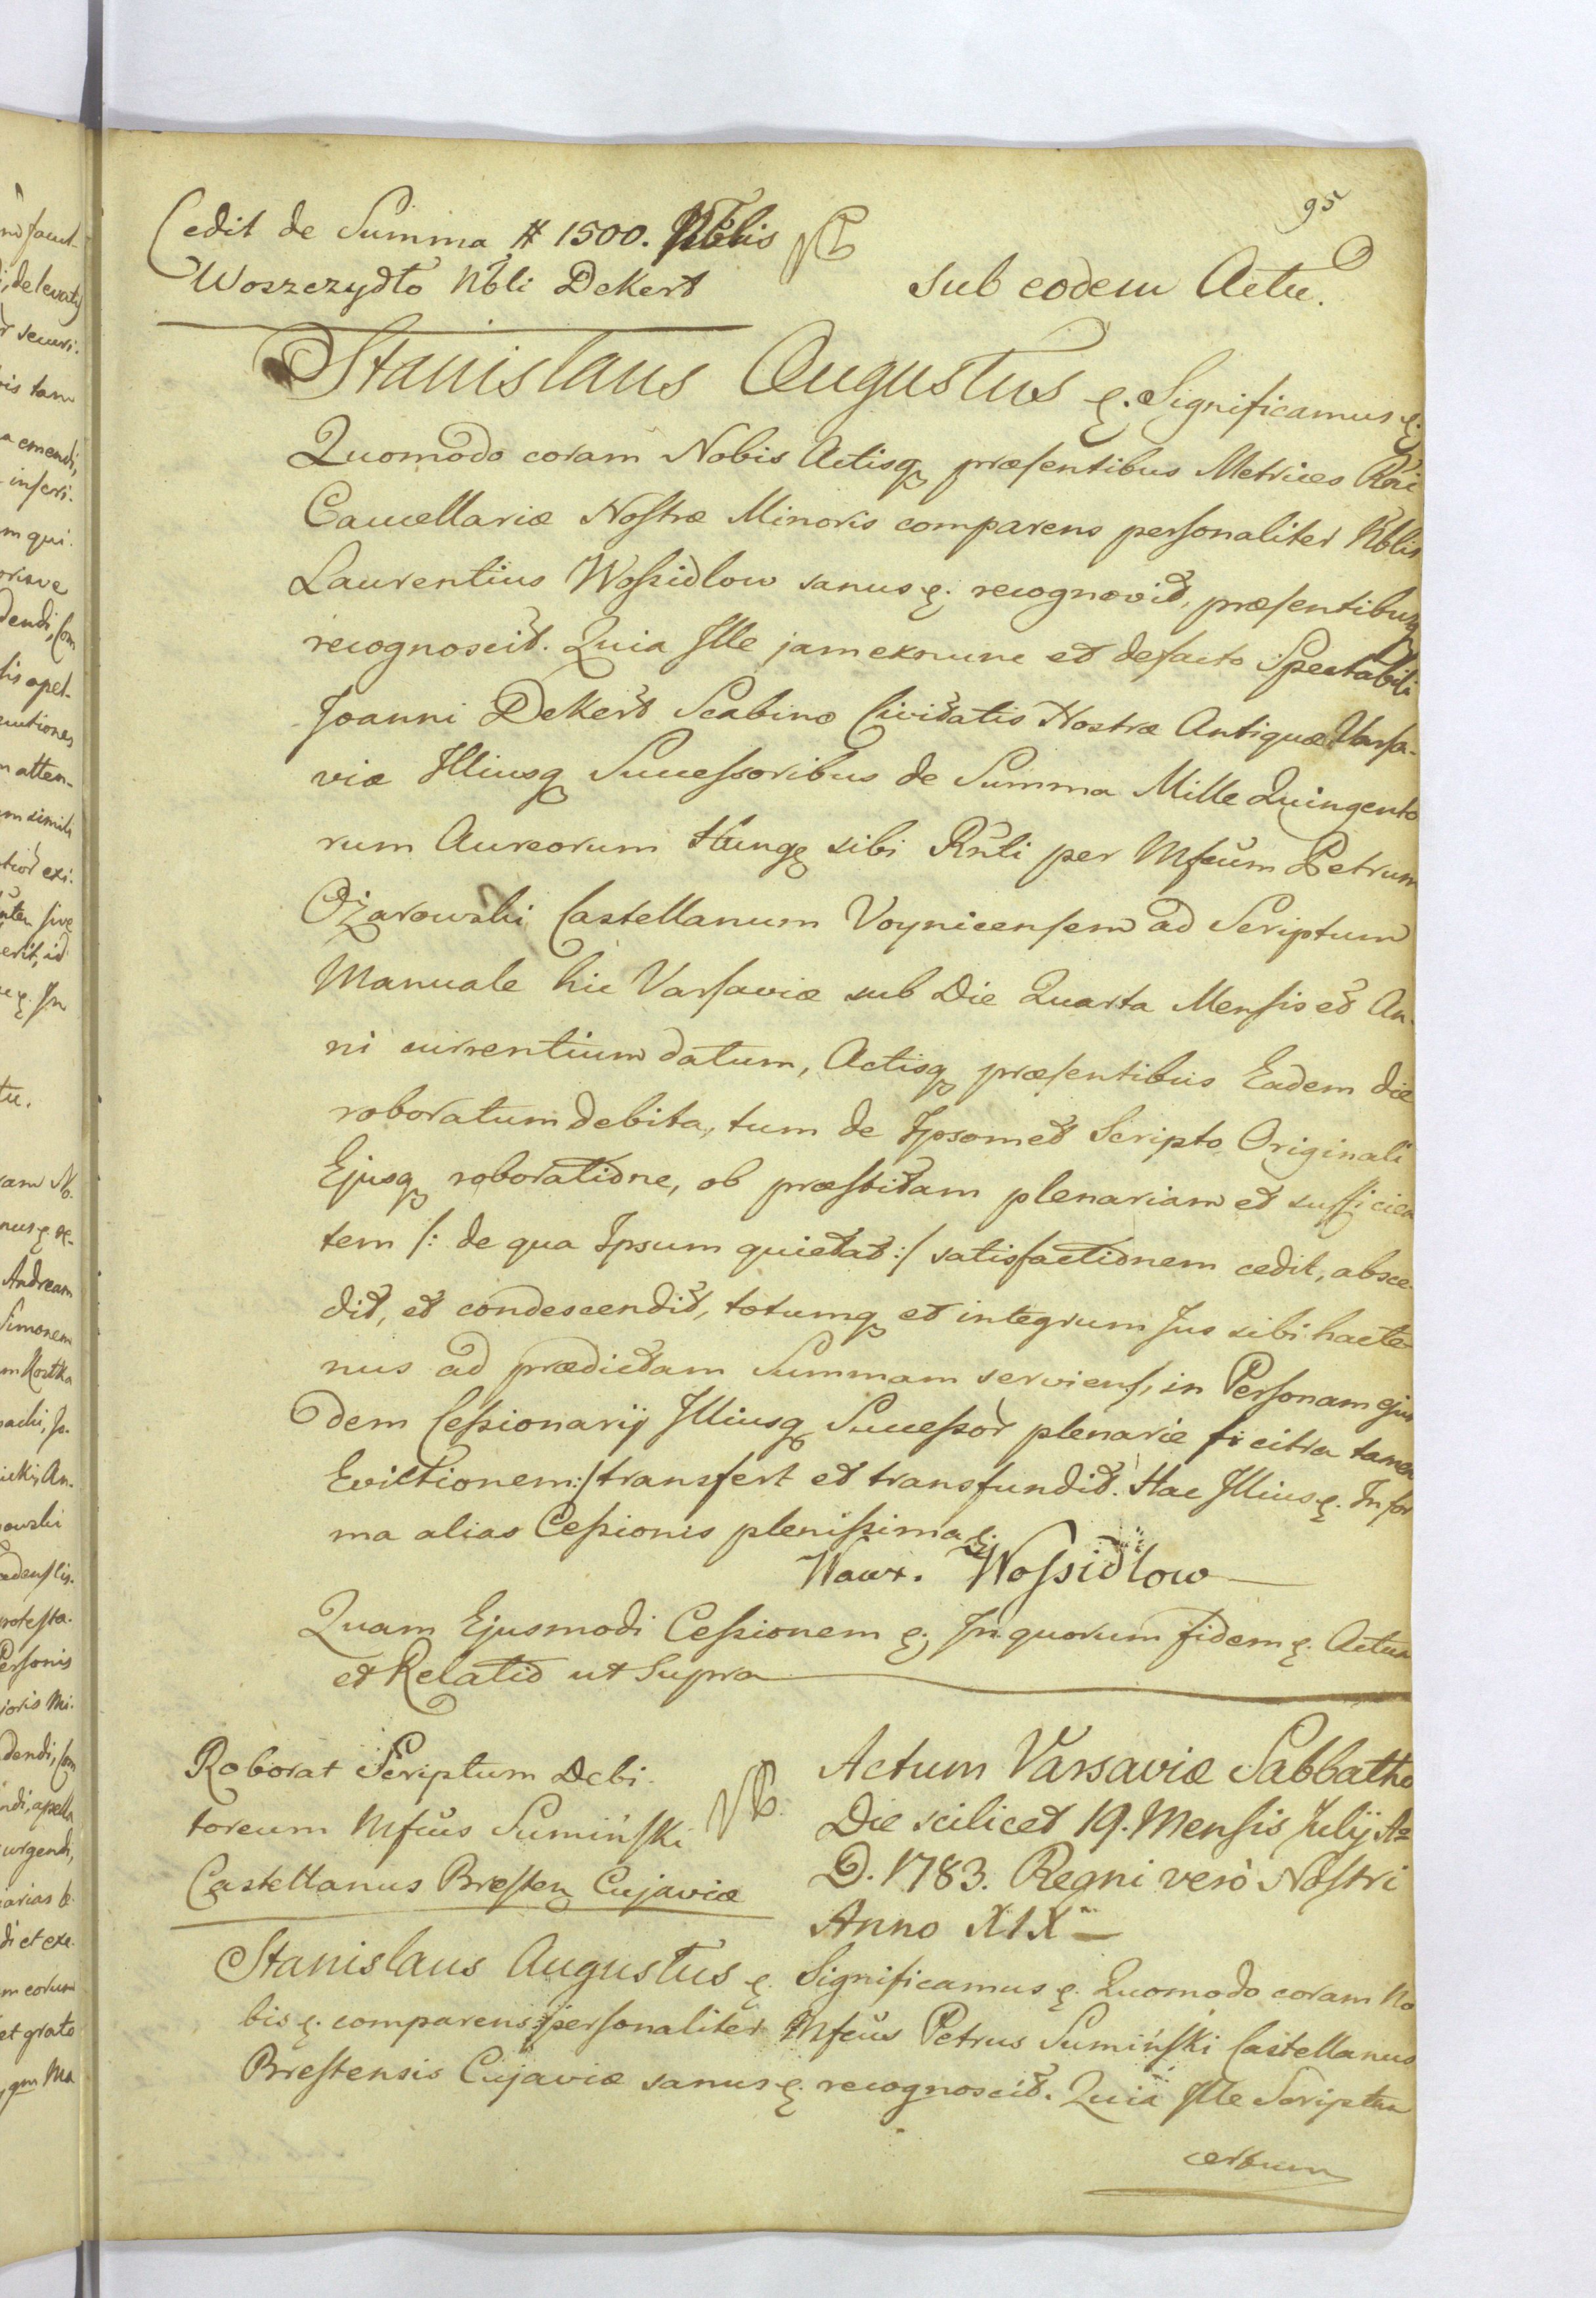 95
Cedit de Summa # 1500. Nblis
Woszczydło Nbli Dekert
sub eodem Actu.
Stanislaus Augustus &. Significamus &.
Quomodo coram Nobis Actisq præsentibus Metrices Rñi
Cancellariæ Nostræ Minoris comparens personaliter Nblis
Laurentius Wossidlow sanus &. recognovit, præsentibusq
recognoscit. Quia Ille jam exnunc et defacto Spectabili
Joanni Dekert Scabino Civitatis Nostræ Antiquæ Varsa-
viæ Illiusq Successoribus de Summa Mille Quingento
rum Aureorum Hung sibi Rnli per Mfcum Petrum
Ożarowski Castellanum Voynicensem ad Scriptum
Manuale hic Varsaviæ sub Die Quarta Mensis et An-
ni currentium datum, Actisq præsentibus Eadem die
roboratum debita, tum de Ipsomet Scripto Originali
Ejusq roboratione, ob præstitam plenariam et sufficien
tem /: de qua Ipsum quietat :/ satisfactionem cedit, absce-
dit, et condescendit, totumq et integrum Jus sibi hacte-
nus ad prædictam Summam serviens, in Personam ejus
dem Cessionarij Illiusq Successor plenarie /: citra tamen
Evictionem :/ transfert et transfundit. Hac Illius &. In for
ma alias Cessionis plenissima &.
Wawr. Wossidlow
Quam Ejusmodi Cessionem &. In quorum fidem &. Actum
et Relatio ut Supra
Roborat Scriptum Debi-
toreum Mfcus Sumiński
Castellanus Bresten Cujaviæ
NB.
Actum Varsaviæ Sabbatho
Die scilicet 19. Mensis Julij Ao
D. 1783. Regni verò Nostri
Anno XIX
Stanislaus Augustus &. Significamus &. Quomodo coram No
bis &. comparens personaliter Mfcus Petrus Sumiński Castellanus
Brestensis Cujaviæ sanus &. recognoscit. Quia Ille Scriptum
certum